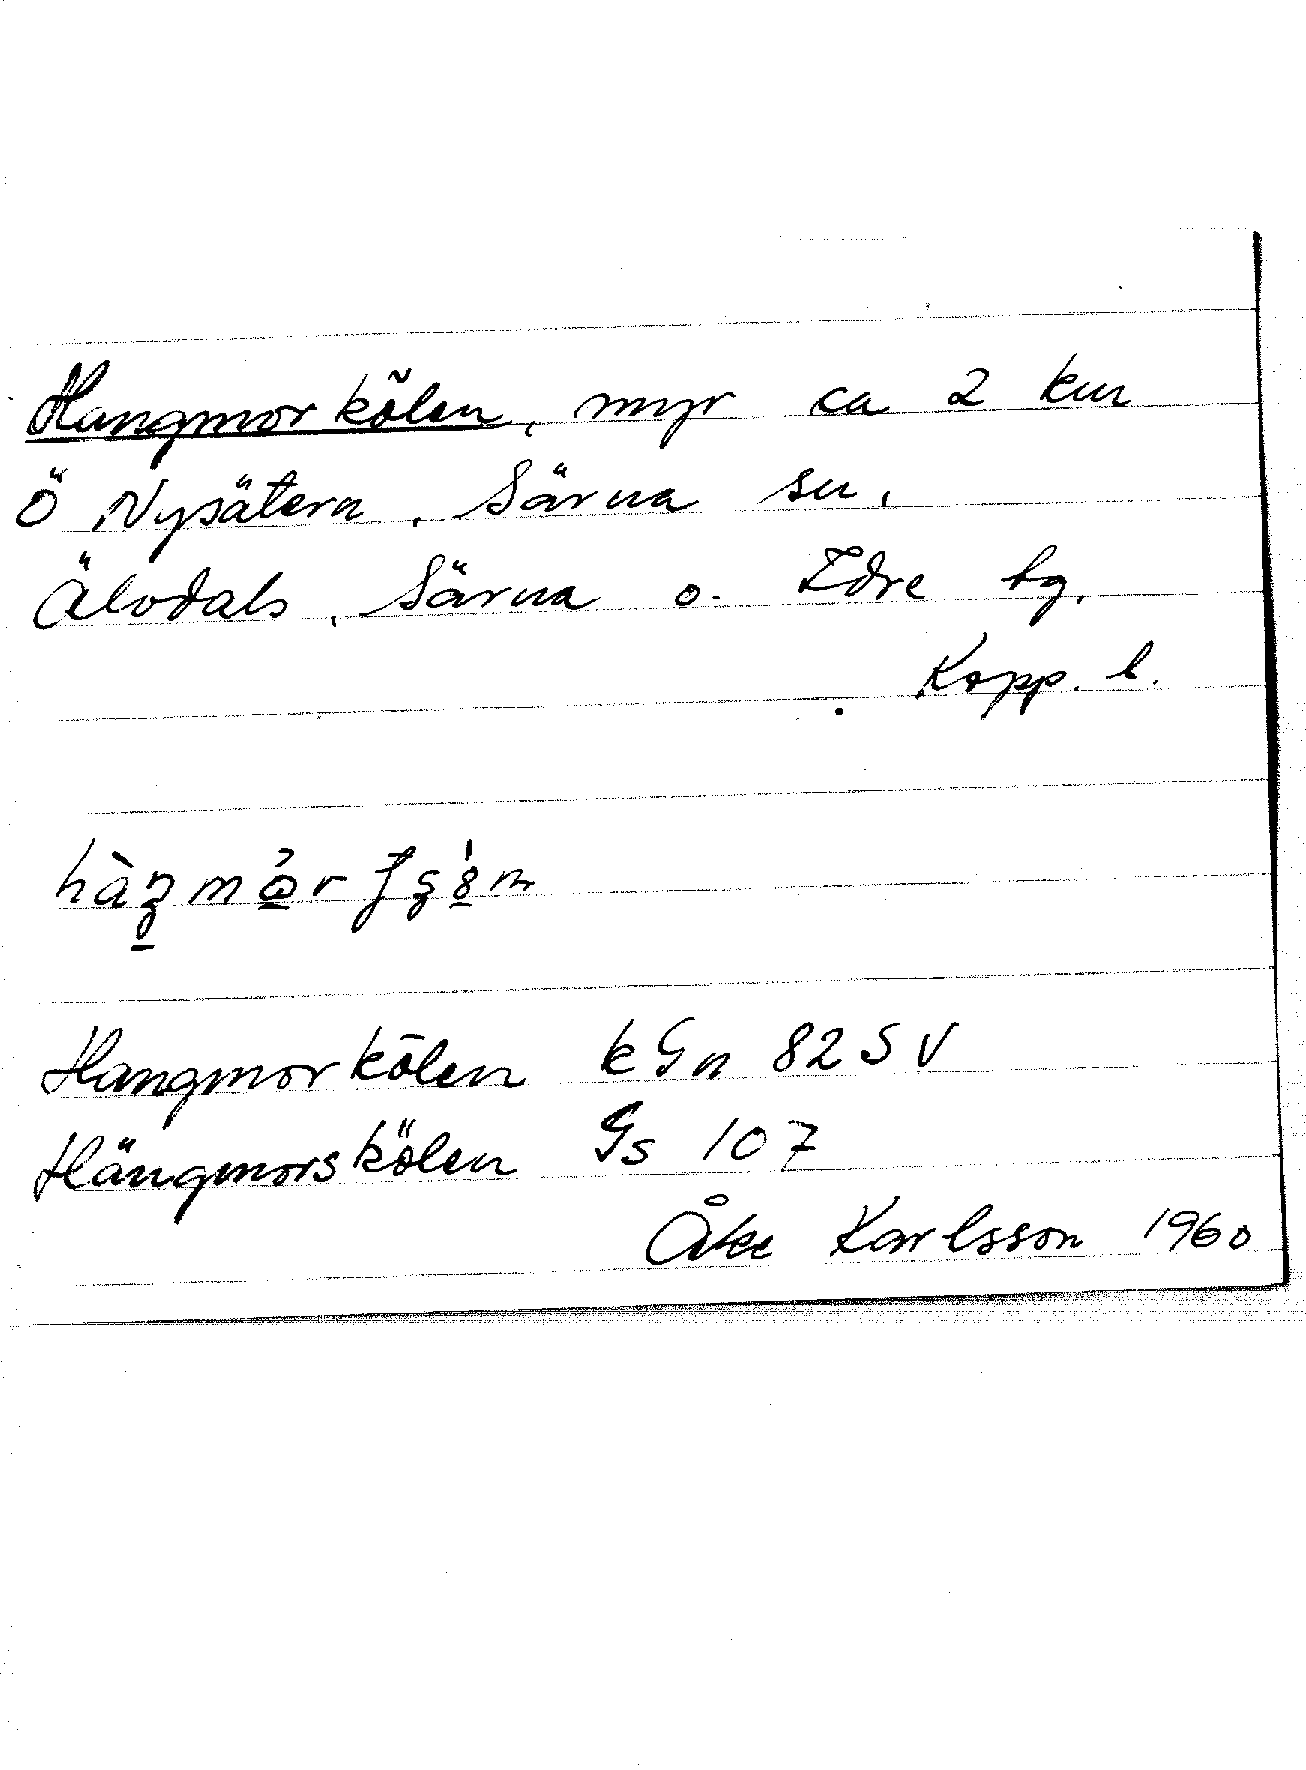 Hangmorkölen, myr ca 2 km
Ö Nysätern, Särna sn,
Älvdals, Särna o. Idre tg,
Kopp. l.
Hangmorkölen kGn 82 SV
Hängmorskölen Gs 107
Åke Karlsson 1960